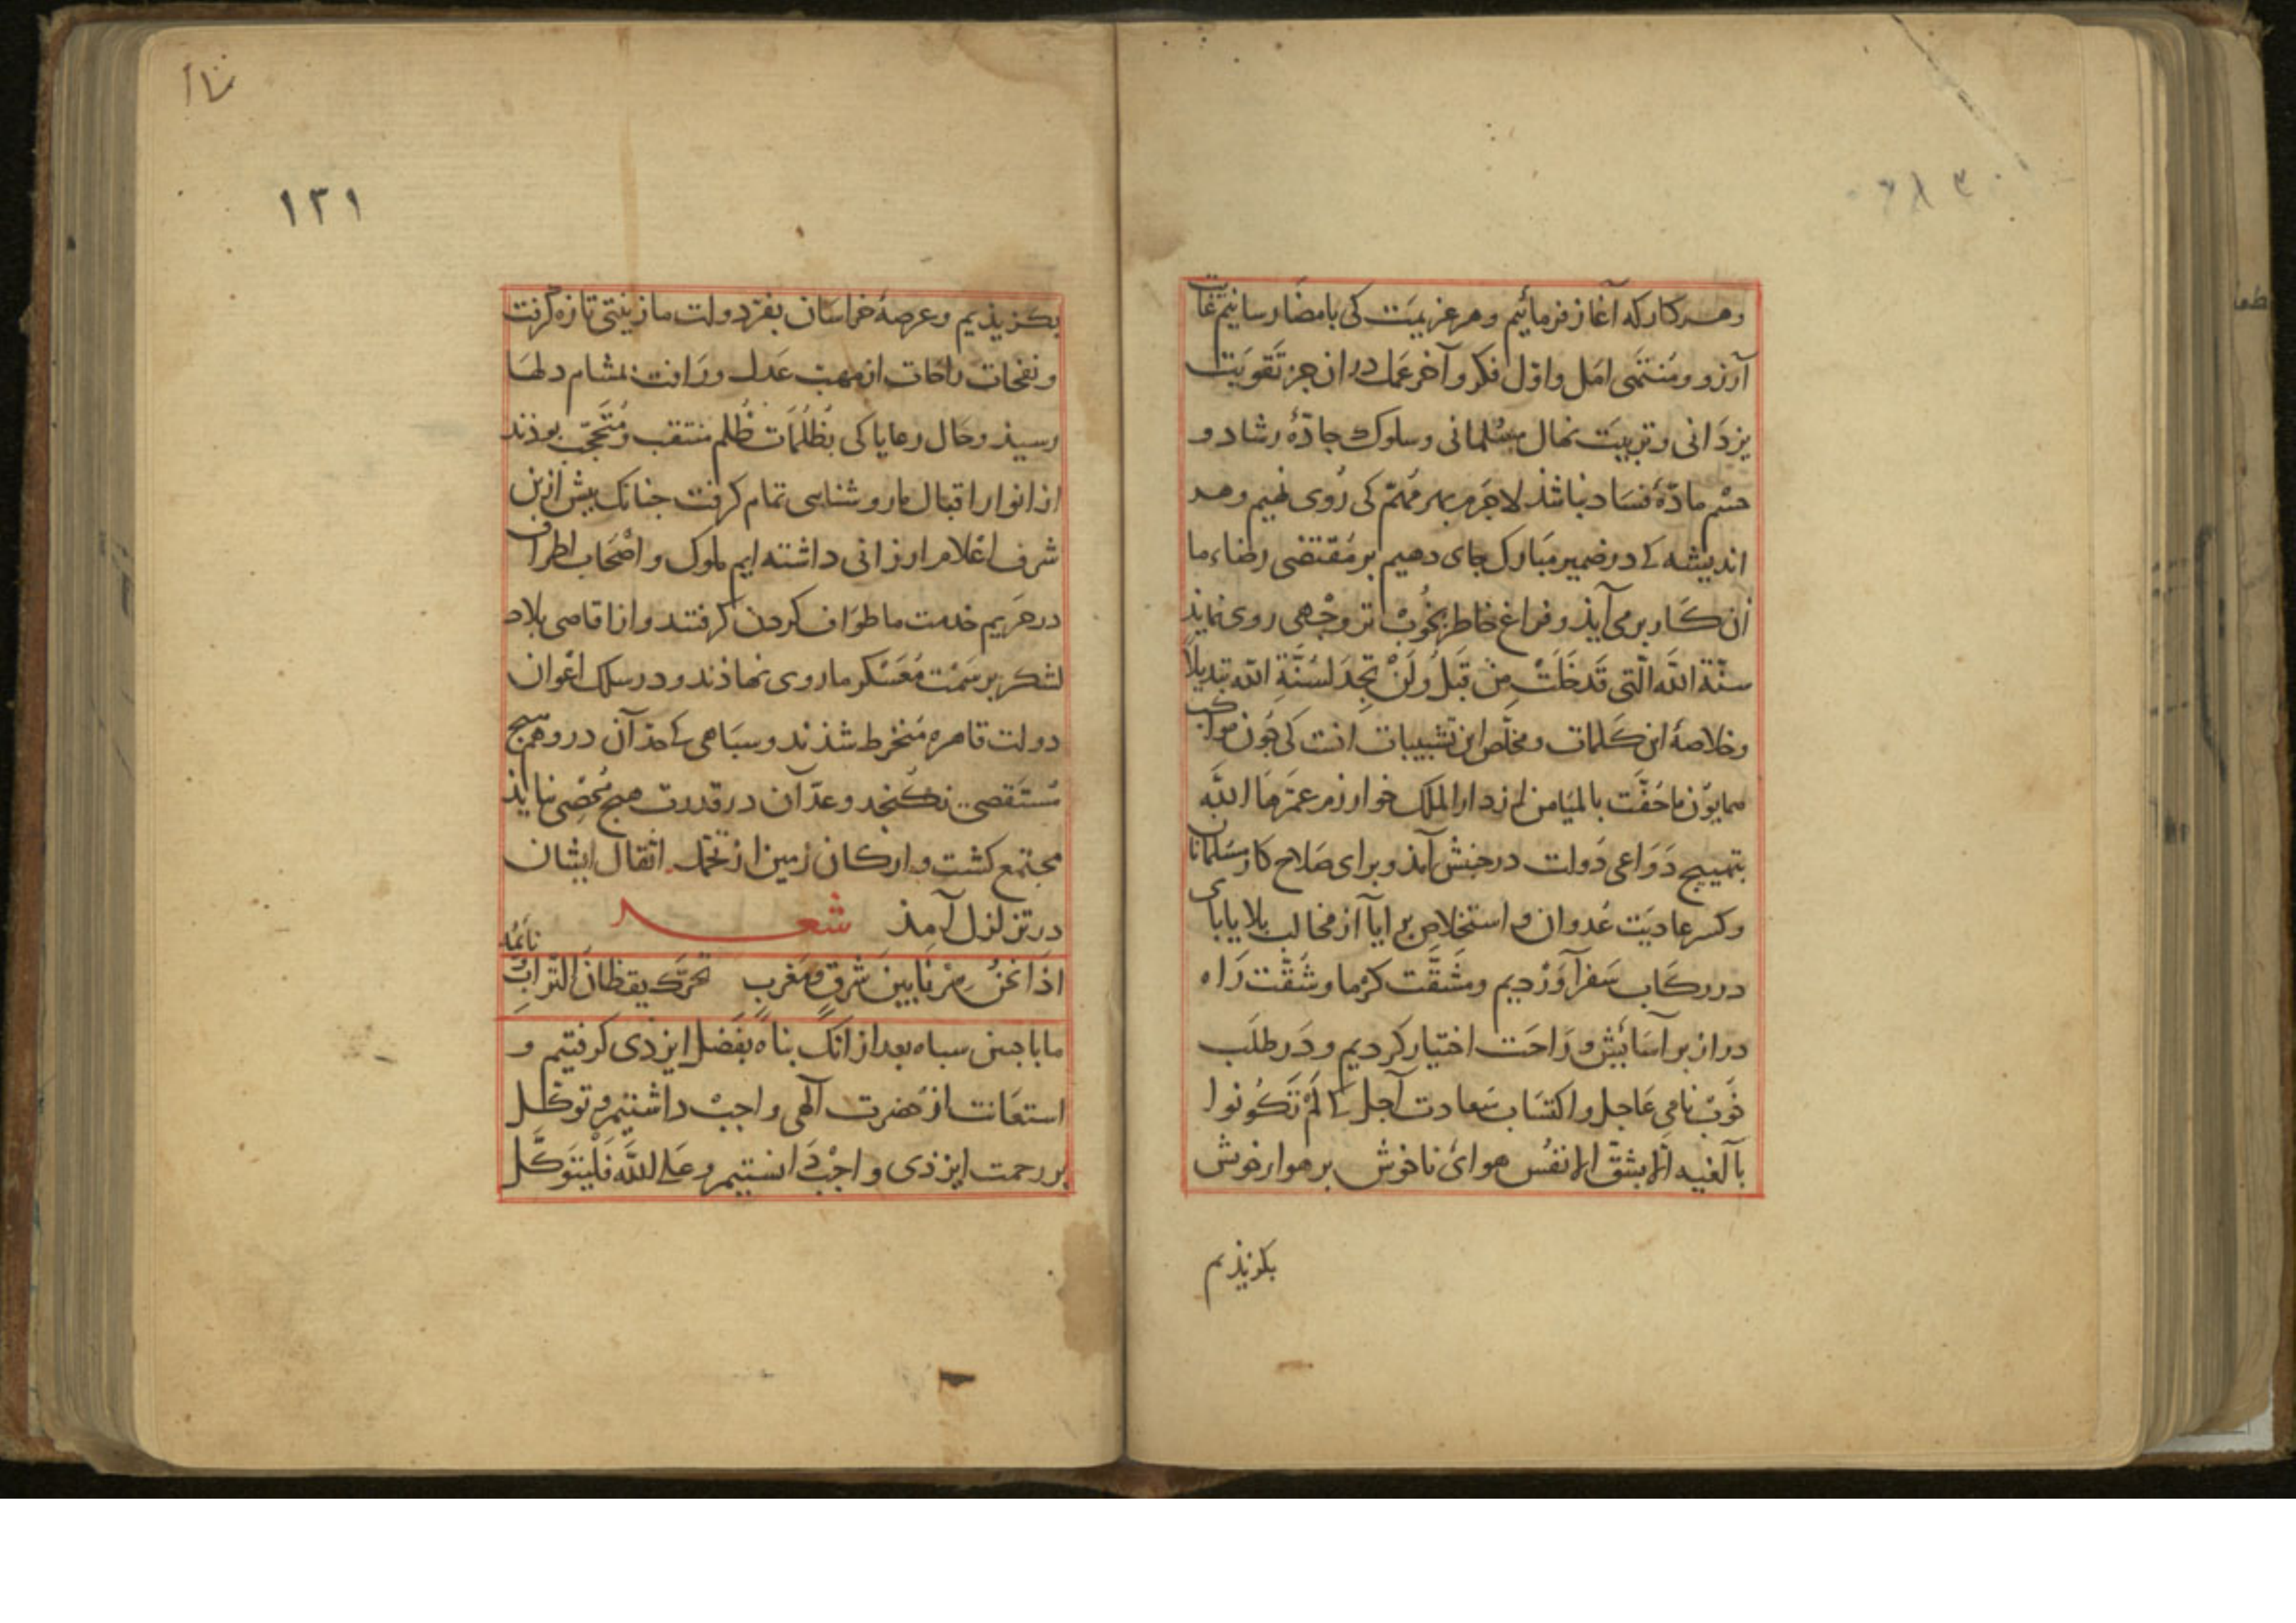 وهر کار که آغاز فرمائیم وهر عزیمت کی بامضا رسانیم غایت
آرزو ومنتهی امل واول فکر وآخر عمل دران جز تقویت
یزدانی وتربیت نهال مسلمانی وسلوک جادّهٔ رشاد و
حسم مادّهٔ فساد نباشذ لاجرم بهر مهم کی روی نهیم وهر
اندیشه که در ضمیر مبارک جای دهیم بر مقتضی رضاء ما
آن کار بر می آیذ وفراغ خاطر بخوب تر وجهی روی نمایذ
سنّة الله الّتی قد خلت من قبل ولن تجد لسنّة الله تبدیلا
وخلاصهٔ این کلمات ومخلص این تشبیبات آنست کی چون مواکب
همایون ما حفّت بالمیامن از دار الملک خوارزم عمّرها الله
بتهییج دواعی دولت در جنبش آمذ وبرای صلاح کار مسلمانان
وکسر عادیت عدوان و استخلاص برایا از مخالب بلایا پای
در رکاب سفر آوردیم ومشقّت گرما وشقّت راه
دراز بر آسایش و راحت اختیار کردیم ودر طلب
نامی عاجل واکتساب سعادت آجل که لم تکونوا
بالغیه الّا بشقّ الانفس هوای ناخوش بر هوار خوش
بکزیذیم
۱۳۱
بکزیذیم وعرصهٔ خراسان بفرّ دولت ما زینتی تازه گرفت
ونفحات راحات از مهبّ عدل ورافت بمشام دلها
رسیذ وحال رعایا کی بظلمات ظلم منتقب ومتحجّب بوذند
از انوار اقبال ما روشنایی تمام گرفت چنانک پیش ازین
شرف اعلام ارزانی داشته ایم ملوک واصحاب اطراف
در حریم خدمت ما طواف کردن گرفتند واز اقاصی بلاد
لشکر بر سمت معسکر ما روی نهاذند ودر سلک اعوان
دولت قاهره منخرط شذند وسپاهی که حذ آن در وهم هیچ
مستقصی نکنجد وعدّ آن در قدرت هیچ محصی نیایذ
مجتمع گشت و ارکان زمین از تحمّل اثقال ایشان
در تزلزل آمذ شعر
اذا نحن سرنا بین شرق ومغرب تحرّک یقظان التراب ونائمه
ما با جنین سپاه بعد از آنک پناه بفضل ایزدی گرفتیم و
استعانت از حضرت آلهی واجب داشتیم و توکّل
بر رحمت ایزذی واجب دانستیم وعلی الله فلیتوکّل